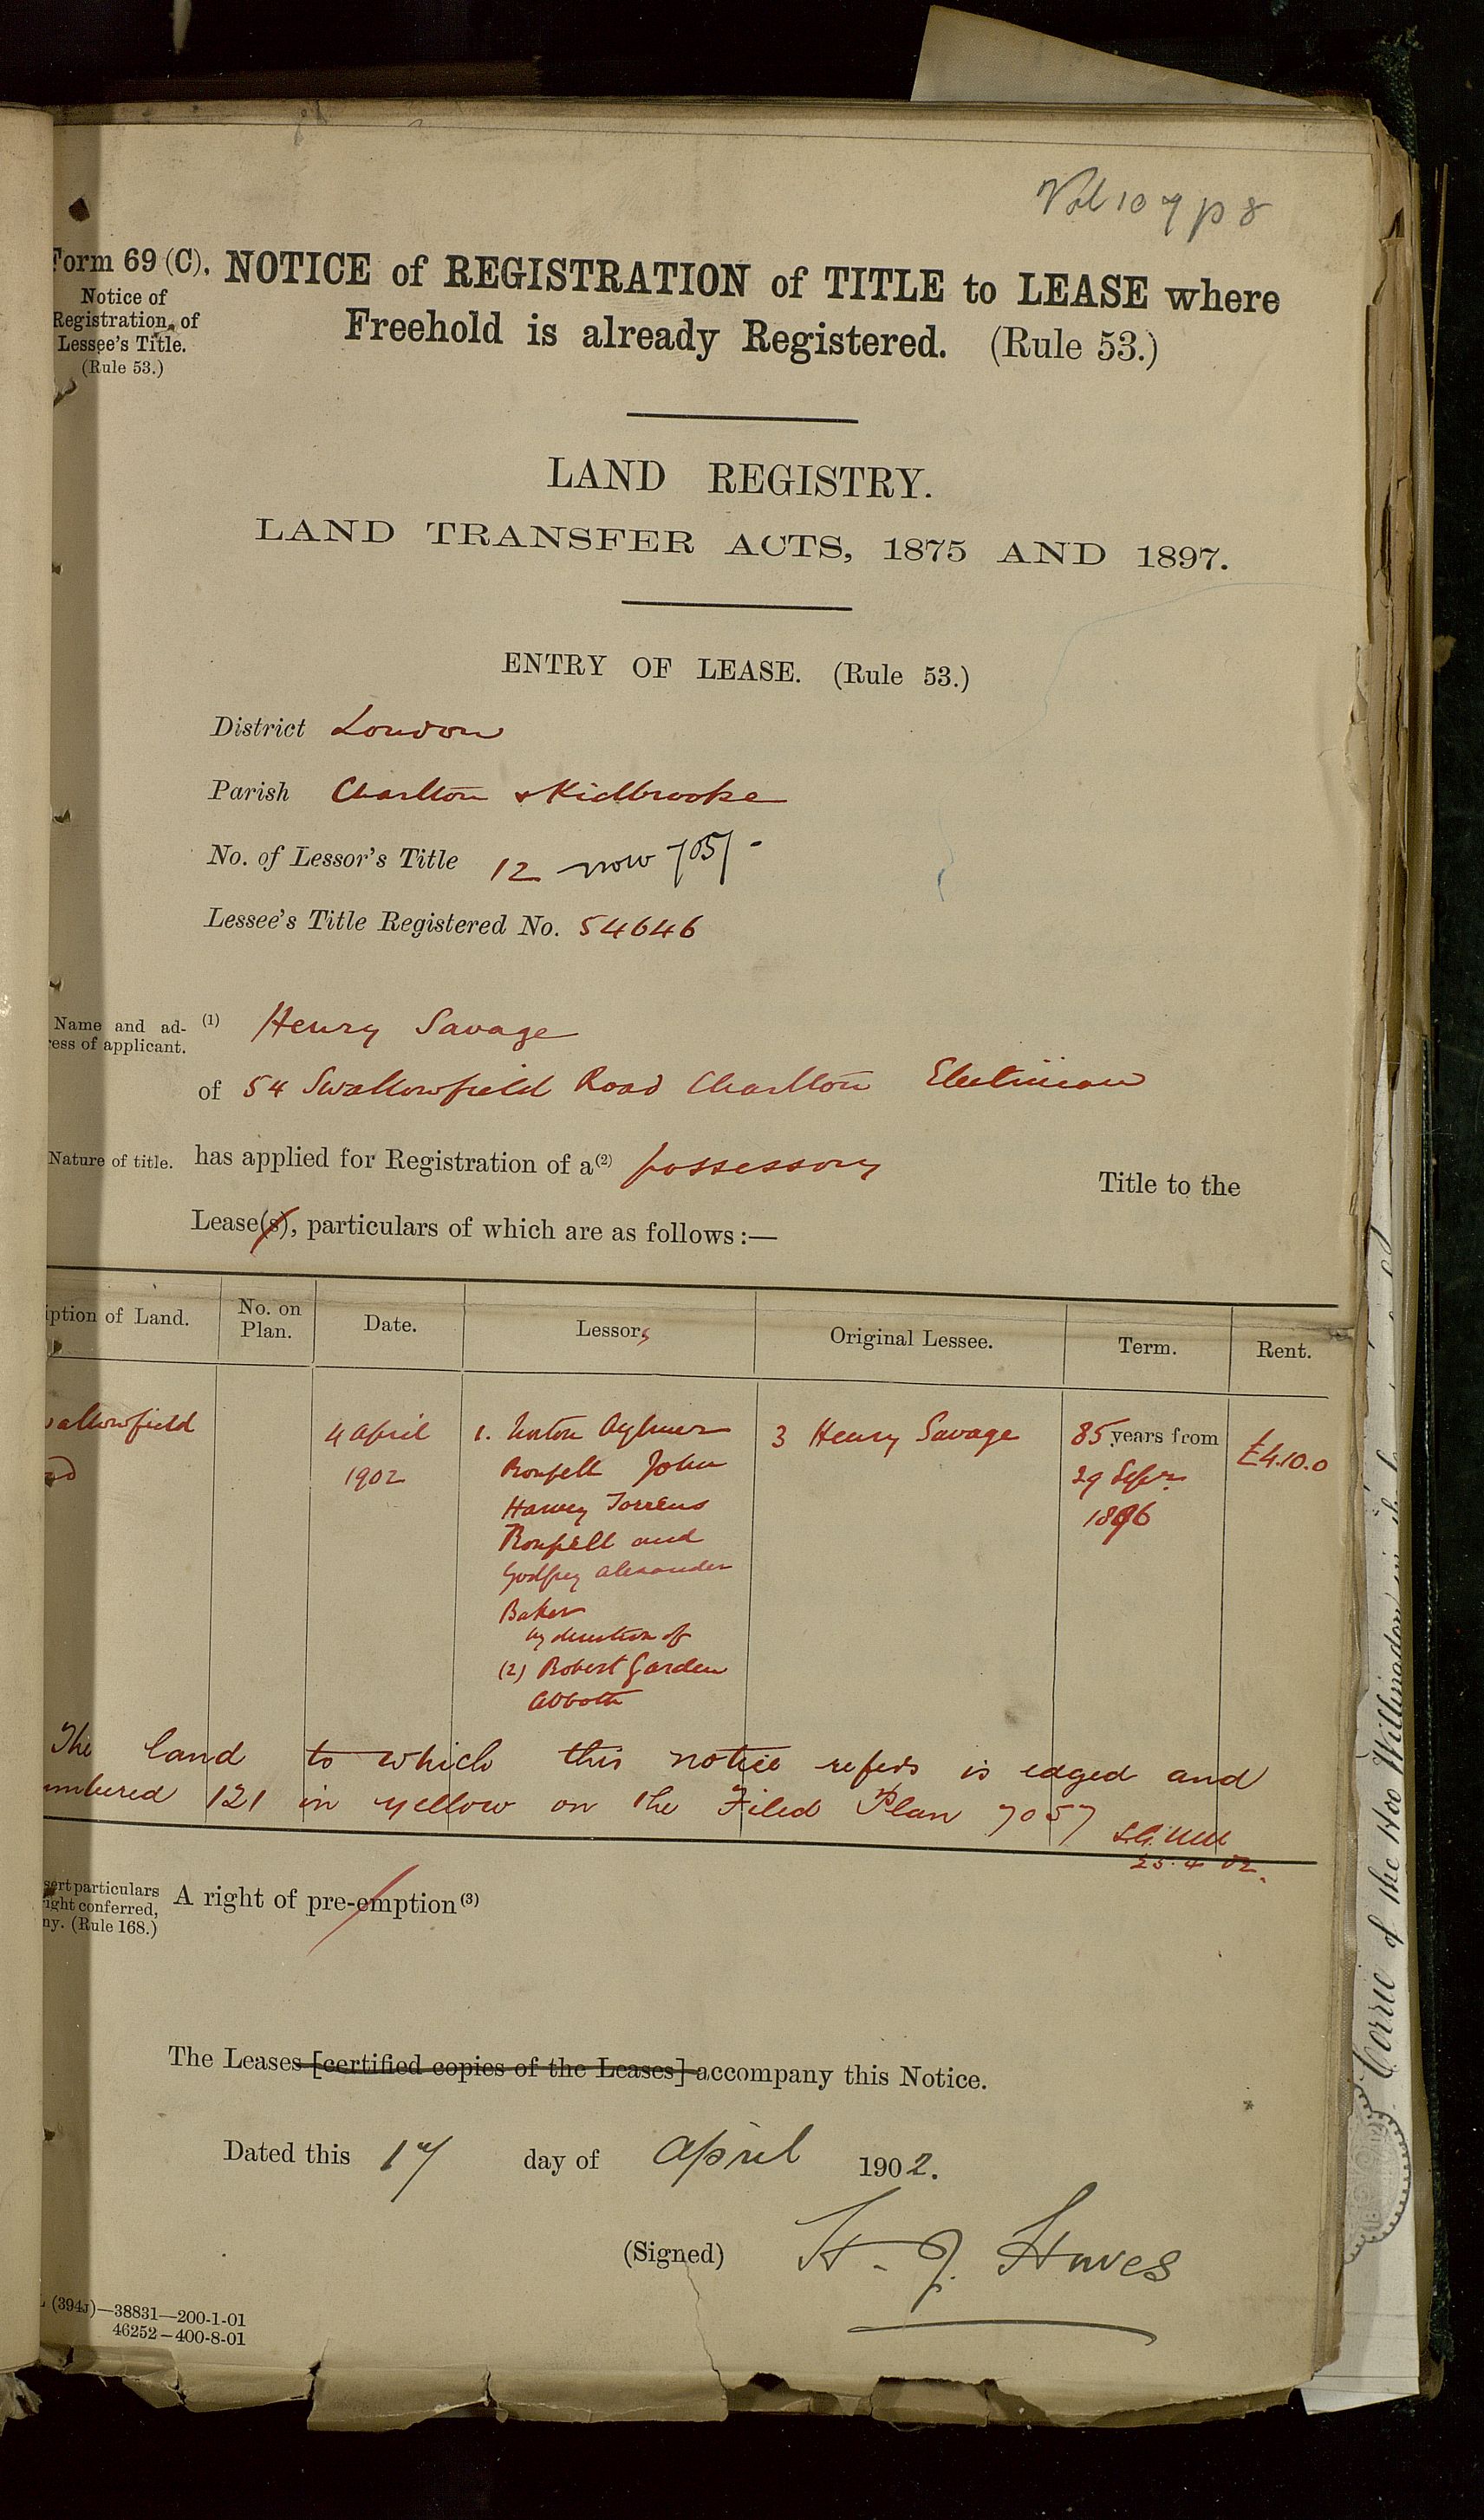 Vol 109 p 8
Form 69 (C). NOTICE of REGISTRATION of TITLE to LEASE where
Freehold is already Registered. (Rule 53.)
Notice of
Registration of
Lessee's Title.
(Rule 53.)
LAND REGISTRY.
LAND TRANSFER ACTS, 1875 AND 1897.
ENTRY OF LEASE. (Rule 53.)
District London
Parish Charlton & Kidbrooke
No. of Lessor's Title 12 now 7057
Lessee's Title Registered No. 54646
Name and ad-
ress of applicant.
(1) Henry Savage
of 54 Swallowfield Road Charlton Electrician
Nature of title. has applied for Registration of a(2) possessory Title to the
Lease(s), particulars of which are as follows:—
iption of Land. No. on Plan. Date. Lessors Original Lessee. Term. Rent.
wallowfield 4 April 1. Aylmer 3 Henry Savage 85 years from £4.10.0
ad 1902 Roupell John 29 Sepr.
Harvey Torrens 1896
Roupell and
Godfrey Alexander
Baker
by direction of
(2) Robert Garden
Abbott
The land to which this notice refers is edged and
umbered 121 in yellow on the Filed Plan 7057
25.4.02.
sert particulars
right conferred,
ny. (Rule 168.)
A right of pre-emption(3)
The Leases [certified copies of the Leases] accompany this Notice.
Dated this 17 day of April 1902.
(Signed) H. J.
(394J)—38831—200-1-01
46252—400-8-01
Corrie of the Hoo Willingdon in the